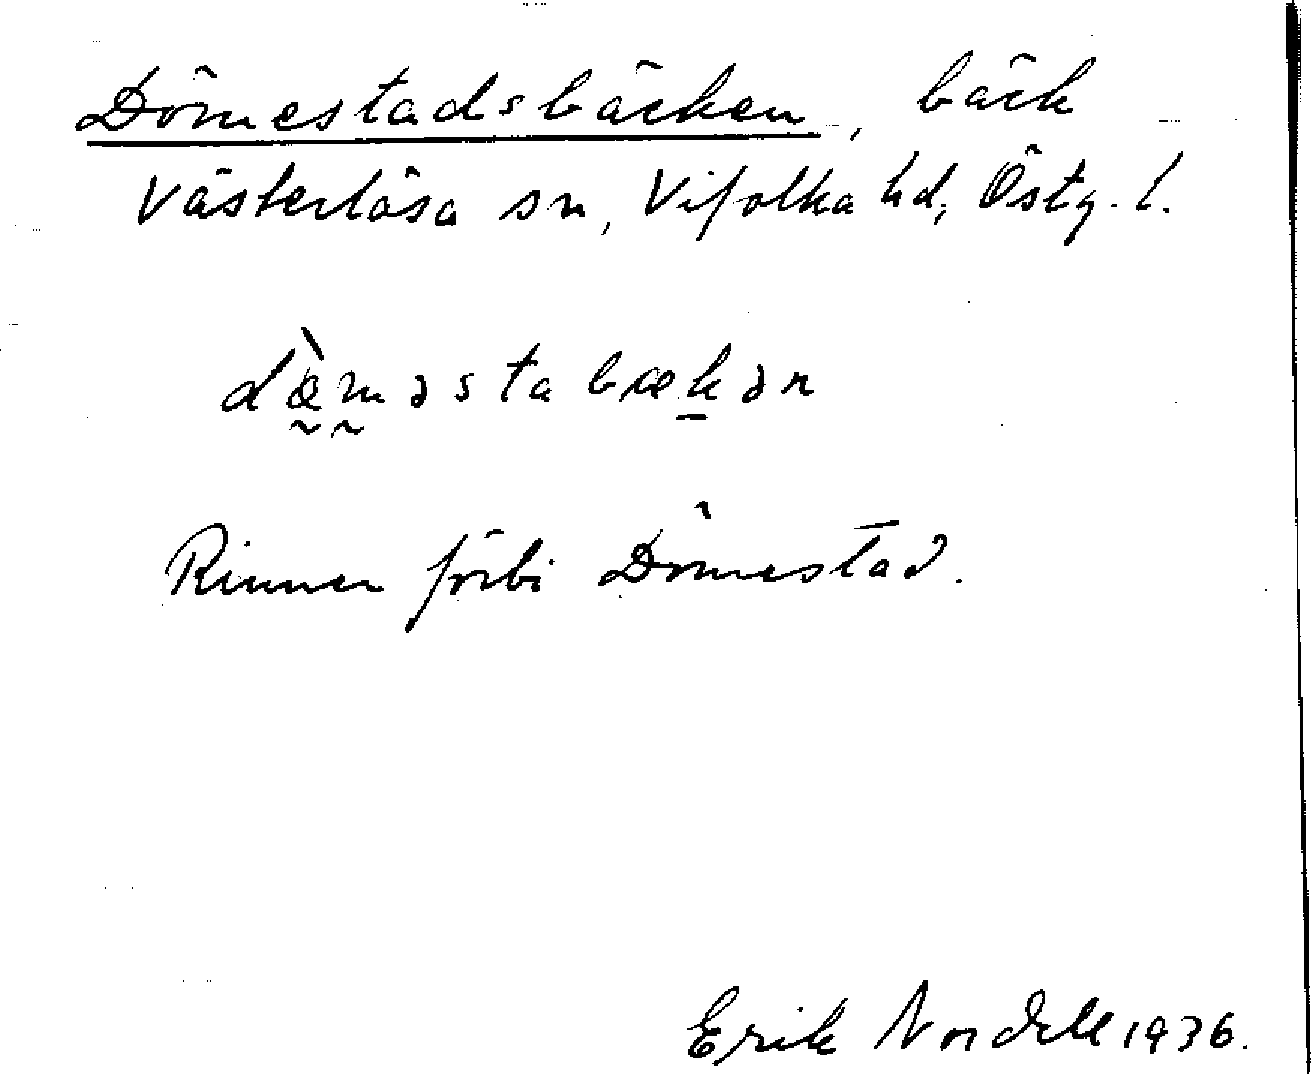 Dömestadsbäcken, bäck
Västerlösa sn, Vifolka hd, Östg. l.
dœ̰̀m̰əstabækən
Rinner förbi Dömestad.
Erik Nordell 1936.